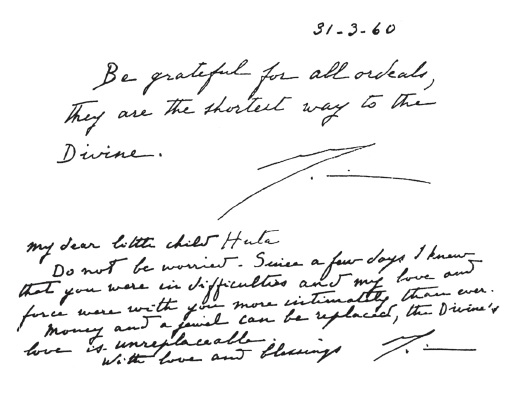 31-3-60
Be grateful for all ordeals,
they are the shortest way to the
Divine.
my dear little child Huta
Do not be worried. Since a few days I knew
that you were in difficulties and my love and
force were with you more intimately than ever.
Money and a jewel can be replaced, the Divine's
love is unreplaceable.
With love and blessings